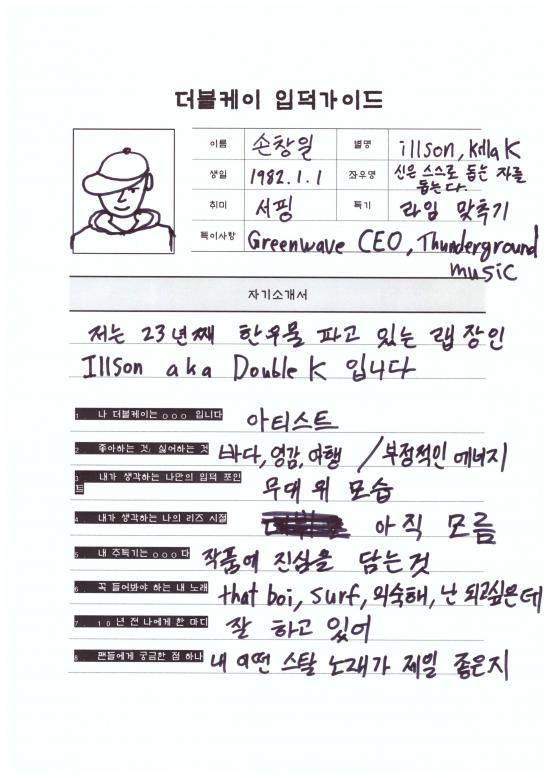 더블케이 입덕가이드
이름 손창일 별명 illson, Killa K
생일 1982.1.1 좌우명 신은 스스로 돕는 자를
돕는다.
취미 서핑 특기 라임 맞추기
특이사항 Greenwave CEO, Thunderground
music
자기소개서
저는 23년째 한우물 파고 있는 랩 장인
Illson aka Double K 입니다
1. 나 더블케이는 ㅇㅇㅇ 입니다 아티스트
2. 좋아하는 것/ 싫어하는 것 바다, 영감, 여행 / 부정적인 에너지
3. 내가 생각하는 나만의 입덕 포인
트 무대 위 모습
4. 내가 생각하는 나의 리즈 시절 아직 모름
5. 내 주특기는 ㅇㅇㅇ다 작품에 진심을 담는것
6. 꼭 들어봐야 하는 내 노래 that boi, surf, 익숙해, 난 되고싶은데
7. 10년 전 나에게 한 마디 잘 하고 있어
8. 팬들에게 궁금한 점 하나 내 어떤 스탈 노래가 제일 좋은지